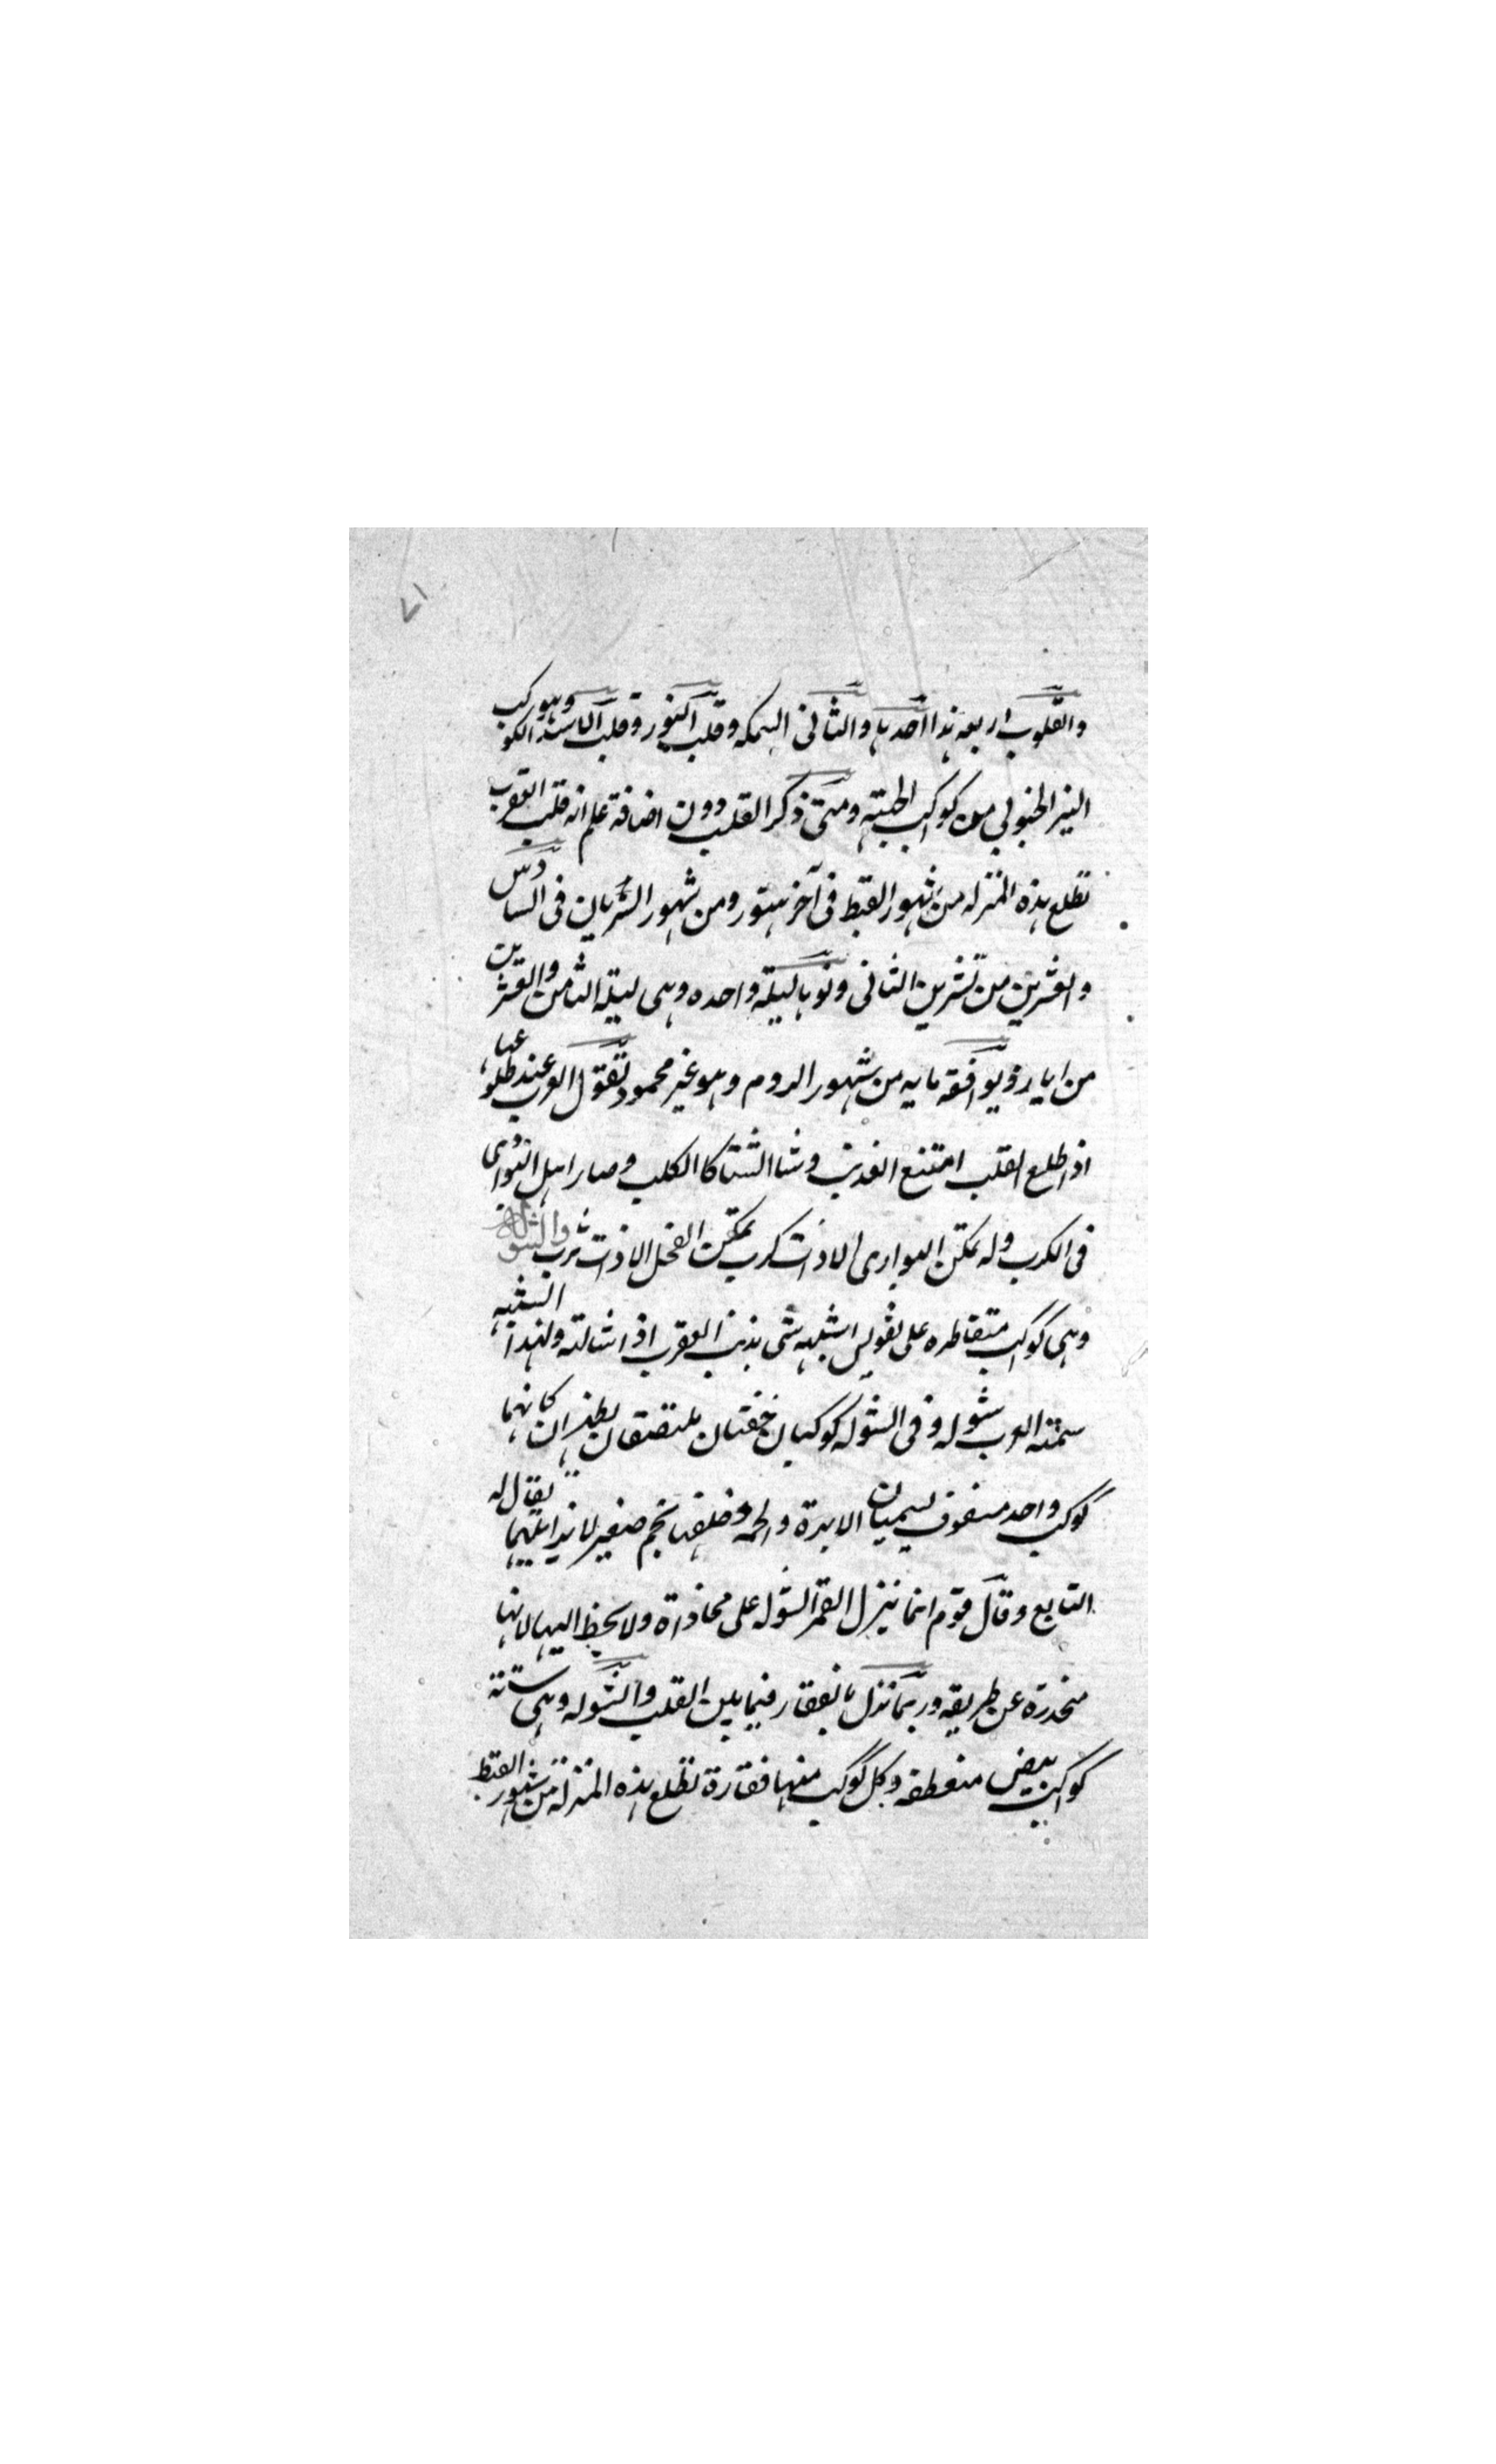 ٧١
والقلوب اربعه هذا احدها والثانى السمكه وقلب الثور وقلب الاسد وهو الكوكب
النير الجنوبي من كواكب الجبهة ومتى ذكر القلب دون اضافة علم انه قلب العقرب
تطلع هذه المنزله من شهور القبط فى آخر هتور ومن شهور السريان فى السادس
والعشرين من تشرين الثانى ونوها ليلة واحده وهى ليلة الثامن والعشرين
من ايار ويوافقه مايه من شهور الروم وهو غير محمود تقول العرب عند طلوعها
اذا طلع القلب امتنع العذب وشا الشتا كالكلب وصار اهل البوادى
فى الكرب وله يمكن البوارى الاذات كرب يمكن الفحل الاذات ثرب والشوله
وهى كواكب متقاطره على تقويس اشبه شى بذنب العقرب اذا شالته ولهذا الشبه
سمته العرب شوله وفى الشوله كوكبان خفيتان ملتصقان يظهران كانهما
كوكب واحد مسفوف يسميان الابرة والحمه وخلفها نجم صغير لا يزايلهما يقال له
التابع وقال قوم انما ينزل القمر الشوله على محاذاة ولا يحظ اليها لانها
منحدرة عن طريقه وربما نزل بالفقار فيما بين القلب والشوله وهى ستة
كواكب بيض منعطفه وكل كوكب منها فقارة تطلع هذه المنزلة من شهور القبط